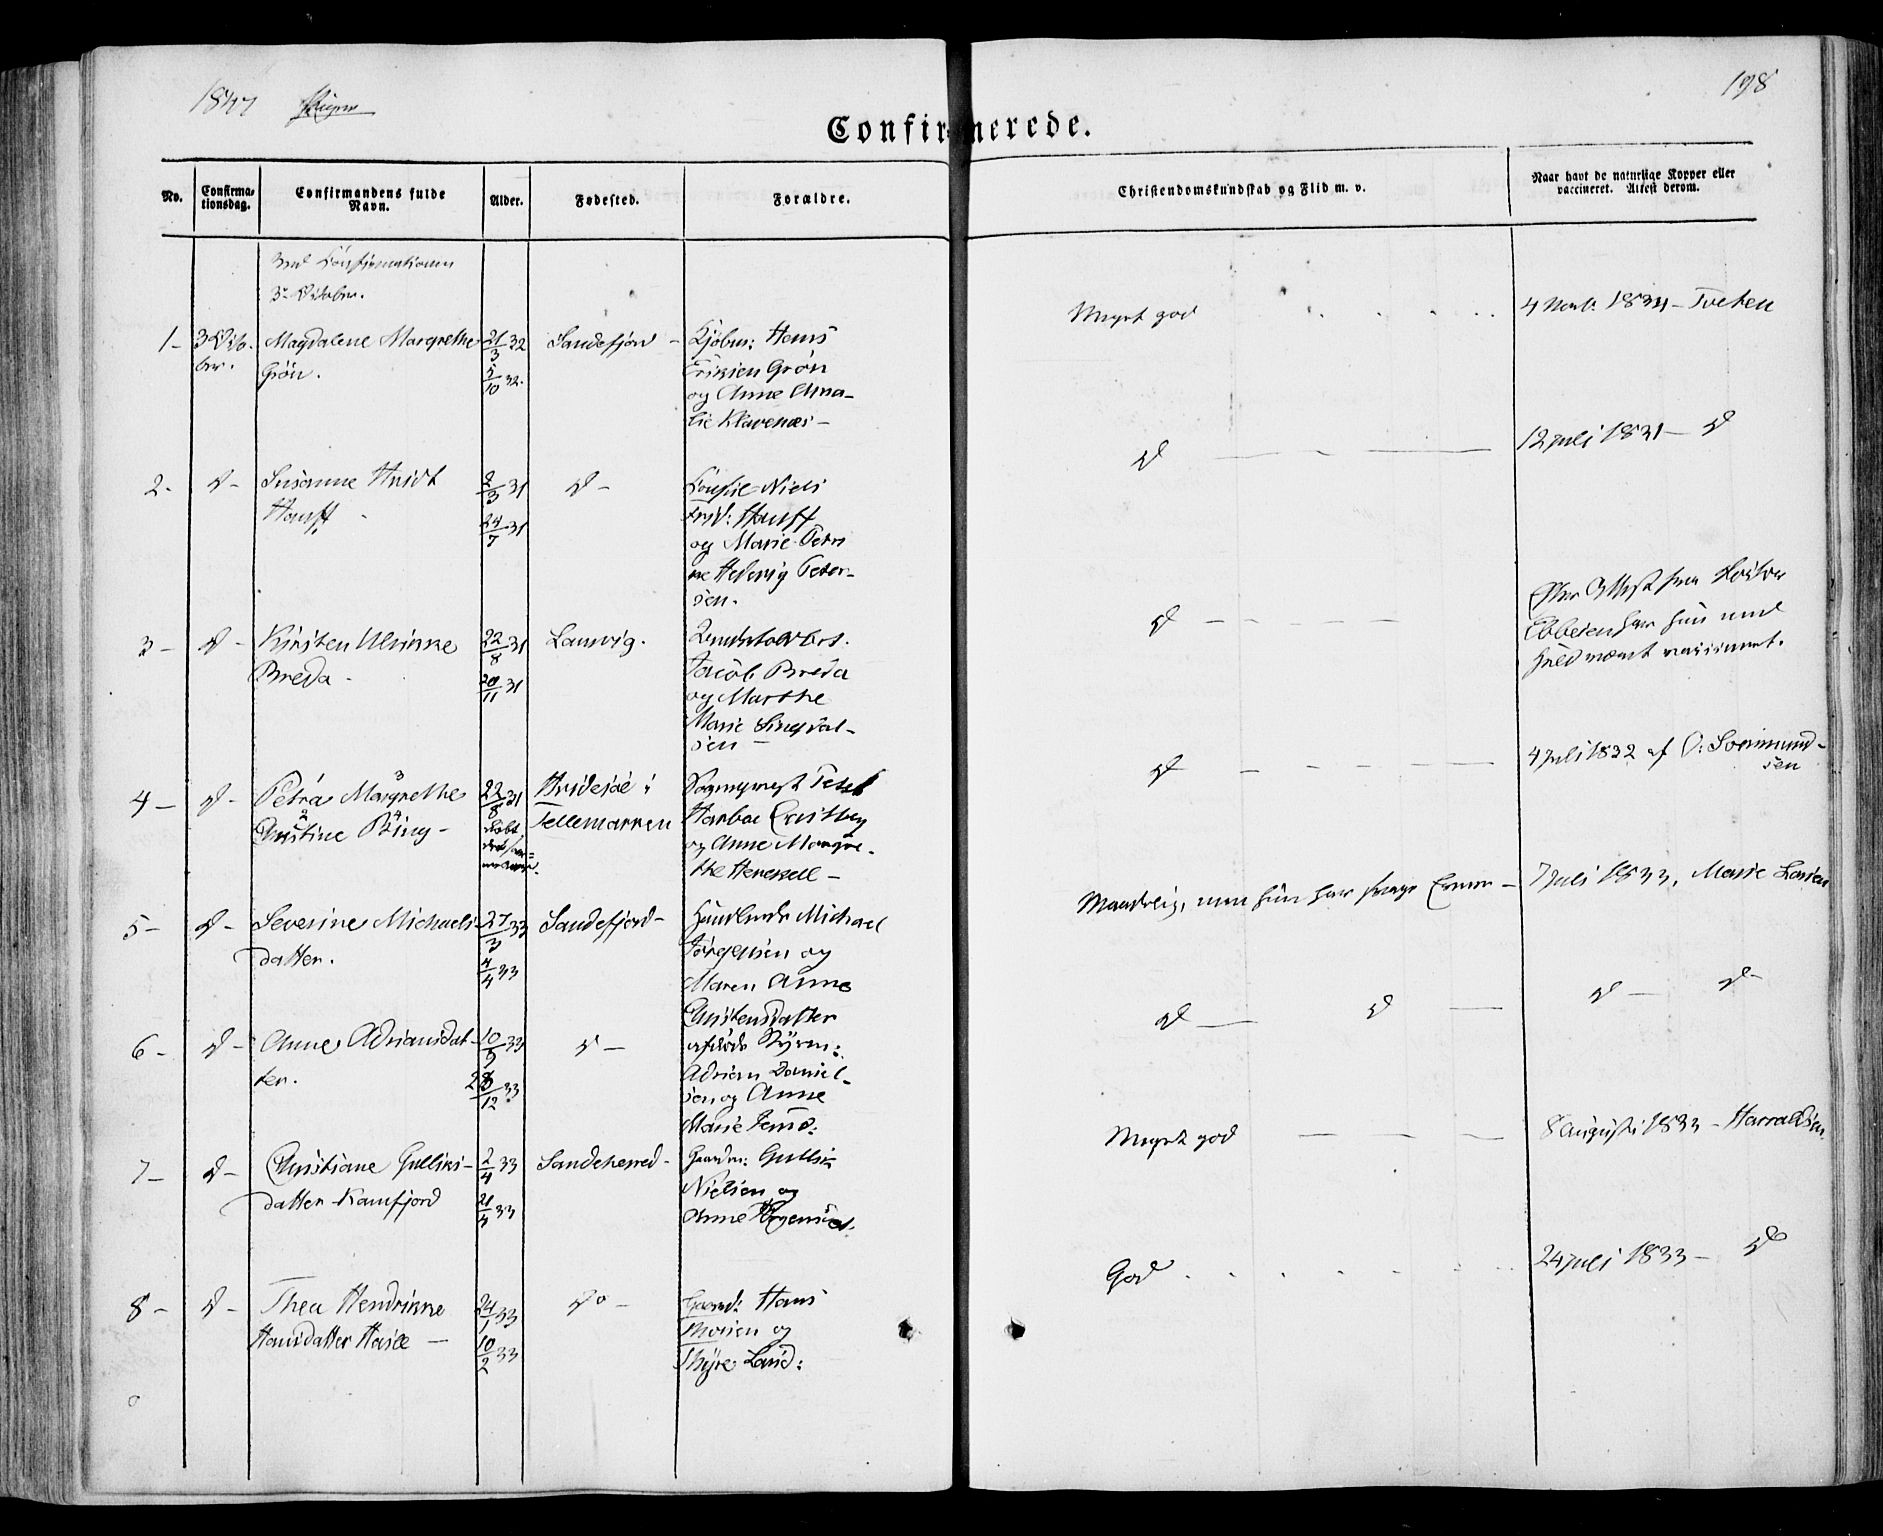 1847
198
Confirmerede.
No.
Confirma-
tionsdag.
Confirmandens fulde
Navn.
Alder.
Fødested.
Forældre.
Christendomskundskab og Flid m. v.
Naar havt de naturlige Kopper eller
vaccineret. Attest derom.
Ved Confirmationen
3de October.
1-
3 Octo-
ber.
Magdalene Margrethe
Grön.
21/3 32
5/10 32.
Sandefjord -
Kjöbm: Hans
Eriksen Grön
og Anne Ama-
lie Klavenæs -
Meget god
4 Novb. 1834 - Tveten
2-
d -
Susanne
Hauff
2/3 31
24/7 31
d -
Consul Niels
Frid: Hauff
og Marie Petri
ne Hedevig Peter-
sen.
d
12 Juli 1831 - d
3 -
d -
Kirsten Ulrikke
Breda -
22/8 31
20/11 31
Laurvig.
Jacob Breda
og Marthe
Marie
sen -
d
Efter Attest fra Doctor
Ebbesen har hun med
Held været vaccineret.
4 -
d -
Petra Margrethe
Christine Bing -
22/8 31
Hvidesöe i
Tellemarken
Peter
Harboe
og Anne Margre-
the
d
4 Juli 1832 af O: Sverimund-
sen
5 -
d -
Severine Michaels-
datter.
27/3 33
4/4 33
Sandefjord -
Michael
Jörgensen og
Maren Anne
Christensdatter
Maadelig, men hun har svage Evner -
7 Juli 1833, Marie Larsen
6 -
d -
Anne Adriansdat-
ter.
10/9 33
28/12 33
d -
afdöde Styrm:
Adrian Daniel-
sen og Anne
Marie Jensd:
d
d
d -
d -
7 -
d -
Christiane Gulliks-
datter Kamfjord
2/4 33
21/4 33
Sandeherred -
Gaardm: Gullik
Nielsen og
Anne
Meget god
8 Augusti 1833 - Harraldsen.
8 -
d -
Thea Hendrikke
Hansdatter Hasle -
24/1 33
10/2 33
do -
Gaardm: Hans
Mosien og
Thyre Larsd:
God
24 Juli 1833 - do